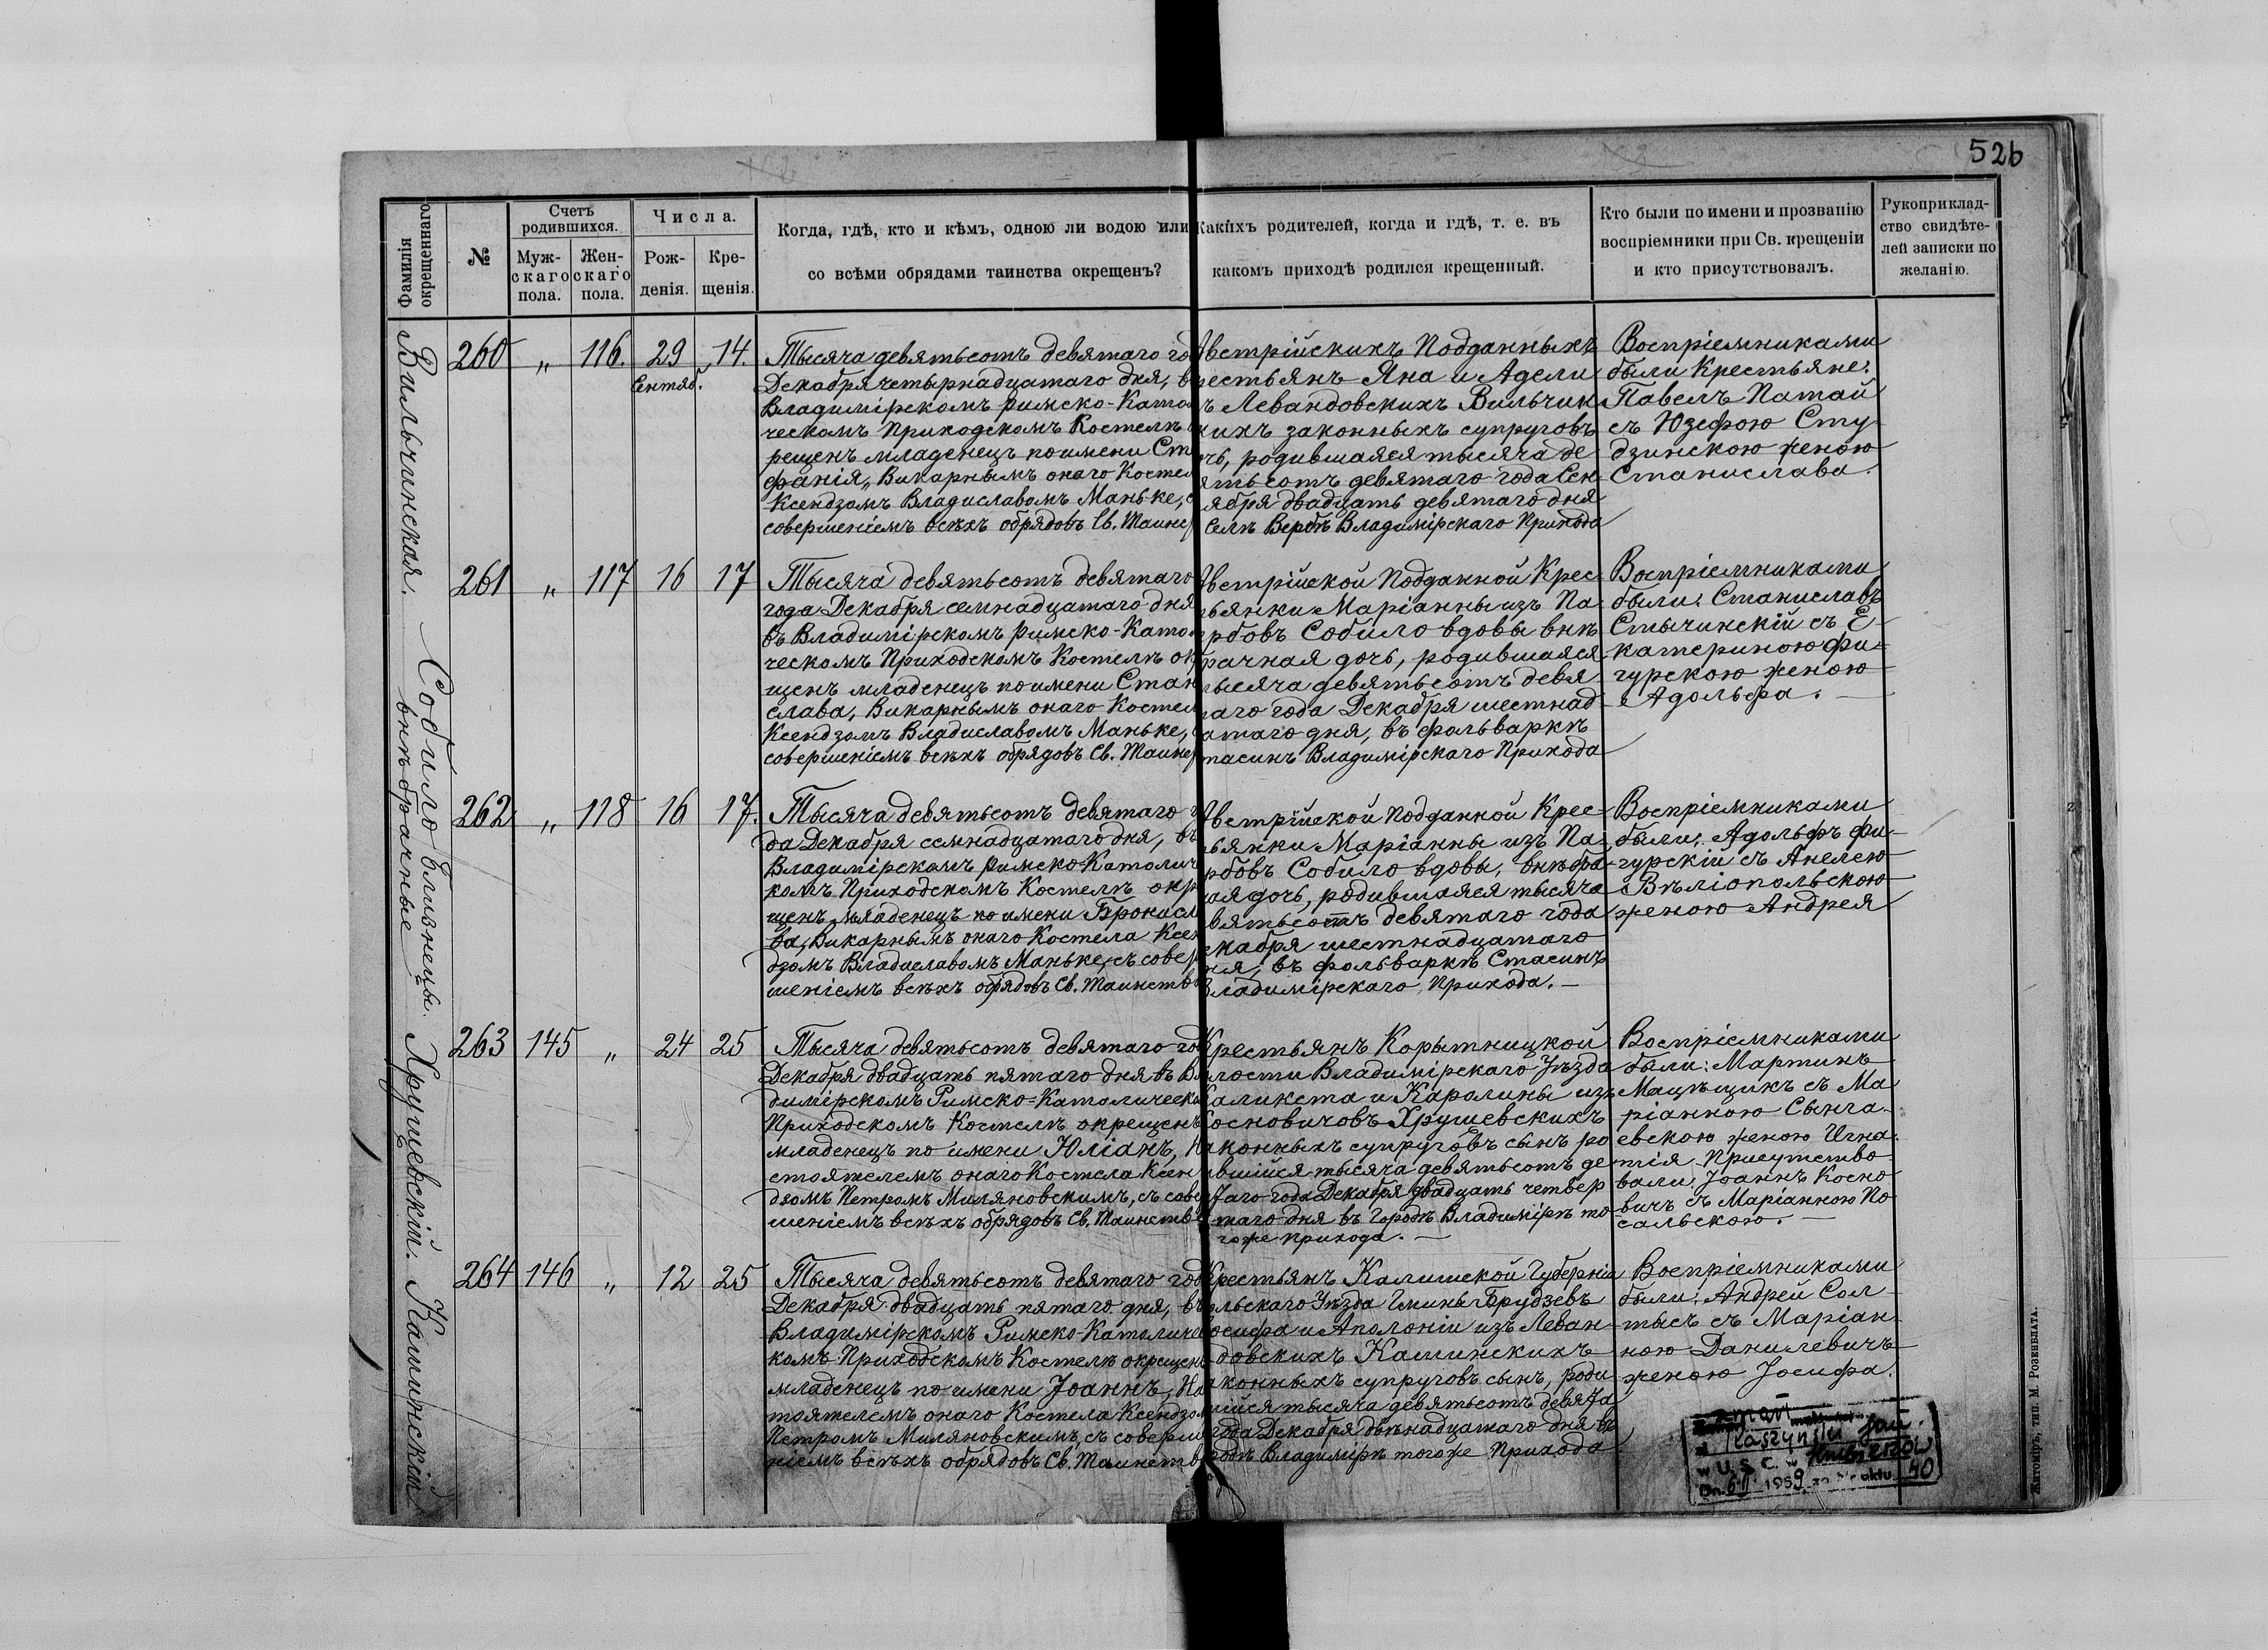 526
Фамилія окрещеннаго
№
Счетъ родившихся.
Муж-скаго пола.
Жен-скаго пола.
Числа.
Рож-денія.
Кре-щенія.
Когда, гдѣ, кто и кѣмъ, одною ли водою или
со всѣми обрядами таинства окрещенъ?
Какихъ родителей, когда и гдѣ, т. е. въ
какомъ приходѣ родился крещенный.
Кто были по имени и прозванію
воспріемники при Св. крещеніи
и кто присутствовалъ.
Рукоприклад-
ство свидѣте-
лей записки по
желанію.
Вильчинская.
260 „ 116. 29 14.
Сентяб.
Тысяча девятьсотъ девятаго го
Декабря четырнадцатаго дня, в
Владимірскомъ Римско-Като
ческомъ Приходскомъ Костелѣ
рещенъ младенецъ по имени Сте
фанія, Викарнымъ онаго Костел
Ксендзомъ Владиславомъ Маньке, с
совершеніемъ всѣхъ обрядовъ Св. Таинс
Австрійскихъ Подданныхъ
рестьянъ Яна и Адели
ъ Левандовскихъ Вильчин
кихъ законныхъ супруговъ
очь, родившаяся тысяча де
ятьсотъ девятаго года Сен
ября двадцать девятаго дня
Селѣ Вербѣ Владимірскаго Прихода
Воспріемниками
были Крестьяне:
Павелъ Патай
съ Юзефою Сту
дзинскою женою
Станислава.
Собило близнецы.
внѣбрачные
261 „ 117 16 17
Тысяча девятьсотъ девятаго
года Декабря семнадцатаго дня
въ Владимірскомъ Римско-Като
ческомъ Приходскомъ Костелѣ ок
щенъ младенецъ по имени Стан
слава, Викарнымъ онаго Костел
Ксендзомъ Владиславомъ Маньке,
совершеніемъ всѣхъ обрядовъ Св. Таинс
Австрійской Подданной Крес-
ьянки Маріанны изъ Па-
рбовъ Собило вдовы внѣ
брачная дочь, родившаяся
тысяча девятьсотъ девя
таго года Декабря шестнад-
атаго дня, въ фольваркѣ
тасинъ Владимірскаго Прихода
Воспріемниками
были: Станиславъ
Стычинскій съ Е-
катериною Фи-
гурскою женою
Адольфа.
262 „ 118 16 17.
Тысяча девятьсотъ девятаго г
да Декабря семнадцатаго дня, въ
Владимірскомъ Римско-Католич
комъ Приходскомъ Костелѣ окр
щенъ младенецъ по имени Бронисл
ва, Викарнымъ онаго Костела Ксен
дзомъ Владиславомъ Маньке, съ совер
шеніемъ всѣхъ обрядовъ Св. Таинств
Австрійской Подданной Крес-
ьянки Маріанны изъ Па-
рбовъ Собило вдовы, внѣбра-
ная дочь, родившаяся тысяча
вятьсотъ девятаго года
екабря шестнадцатаго
ня, въ фольваркѣ Стасинъ
Владимірскаго Прихода.
Воспріемниками
были: Адольфъ Фи-
гурскій съ Анелею
Вѣліопольскою
женою Андрея
Хрущевскій.
263 145 „ 24 25
Тысяча девятьсотъ девятаго год
Декабря двадцать пятаго дня въ Вл
димірскомъ Римско-Католическо
Приходскомъ Костелѣ окрещенъ
младенецъ по имени Юліанъ, На
стоятелемъ онаго Костела Ксен
дзомъ Петромъ Миляновскимъ, съ сове
шеніемъ всѣхъ обрядовъ Св. Таинств
Крестьянъ Корытницкой
лости Владимірскаго Уѣзда
Каликста и Каролины изъ
Косновичовъ Хрущевскихъ
аконныхъ супруговъ сынъ ро
вшійся тысяча девятьсотъ де
таго года Декабря двадцать четвер
таго дня въ Городѣ Владимірѣ то-
гоже прихода.
Воспріемниками
были: Мартинъ
Мацѣщикъ съ Ма
ріанною Сынга-
евскою женою Игна-
тія. Присутство-
вали Іоаннъ Косно
вичъ съ Маріанною По
сальскою.
Каминскій
264 146 „ 12 25
Тысяча девятьсотъ девятаго год
Декабря двадцать пятаго дня, въ
Владимірскомъ Римско-Католичес
комъ Приходскомъ Костелѣ окрещенъ
младенецъ по имени Іоаннъ, На
тоятелемъ онаго Костела Ксендзом
Петромъ Миляновскимъ, съ соверш
ніемъ всѣхъ обрядовъ Св. Таинств
Крестьянъ Калишской Губерніи
ольскаго Уѣзда Гмины Брудзевъ
осифа и Аполоніи изъ Леван-
довскихъ Каминскихъ
аконныхъ супруговъ сынъ, роди
шійся тысяча девятьсотъ девята
года Декабря двѣнадцатаго дня въ
родѣ Владимірѣ тогоже Прихода
Воспріемниками
были: Андрей Сол-
тысъ съ Маріан-
ною Данилевичъ
женою Іосифа.
zmarł
Jan
w U.S.C. w
Dn. 6.II 1959 za Nr aktu 40
Житоміръ, тип. М. Розенблата.